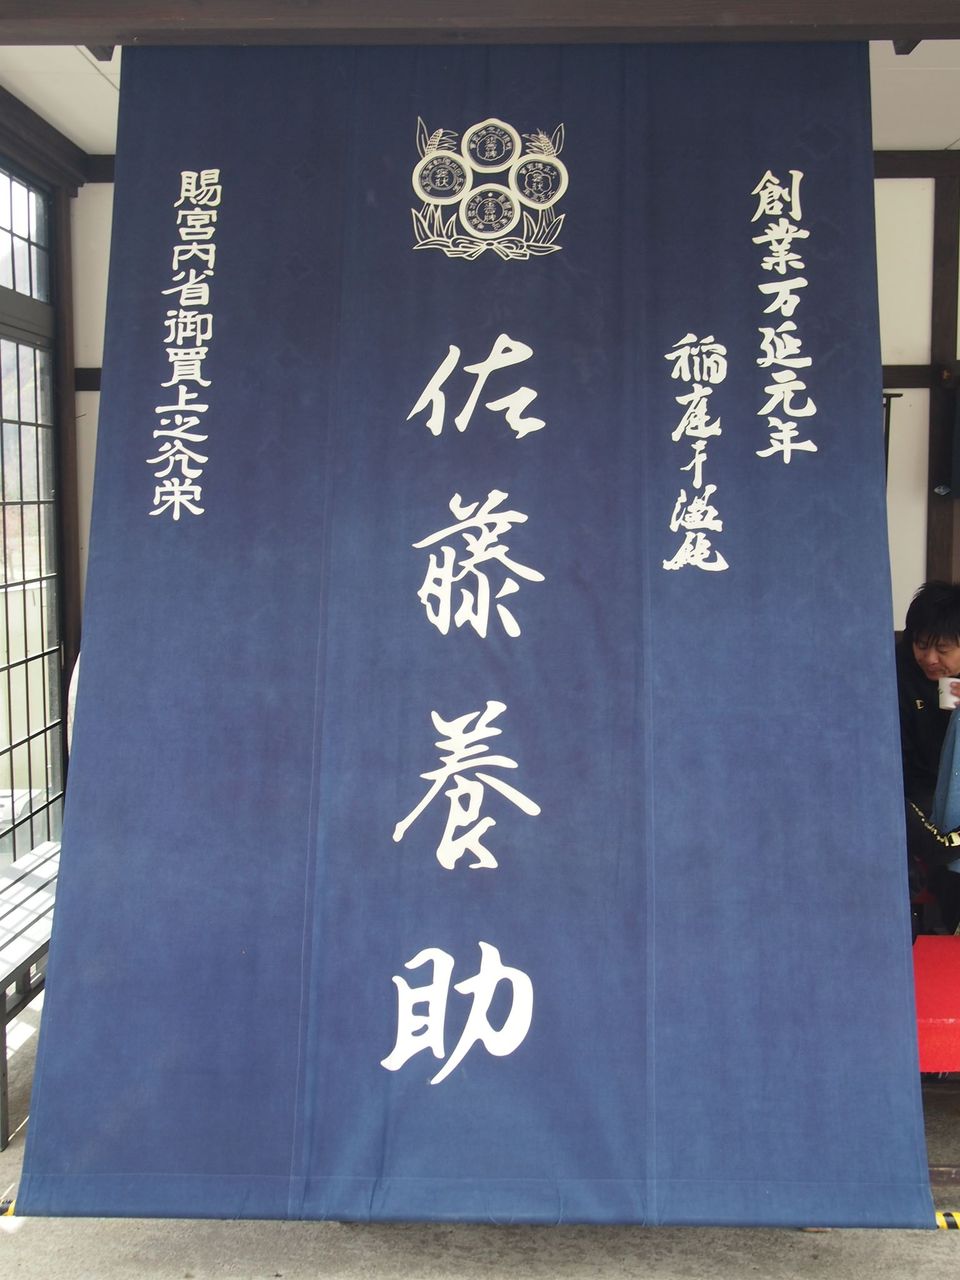 創業万延元年
稲庭干温飩
佐藤養助
賜宮内省御買上之光栄